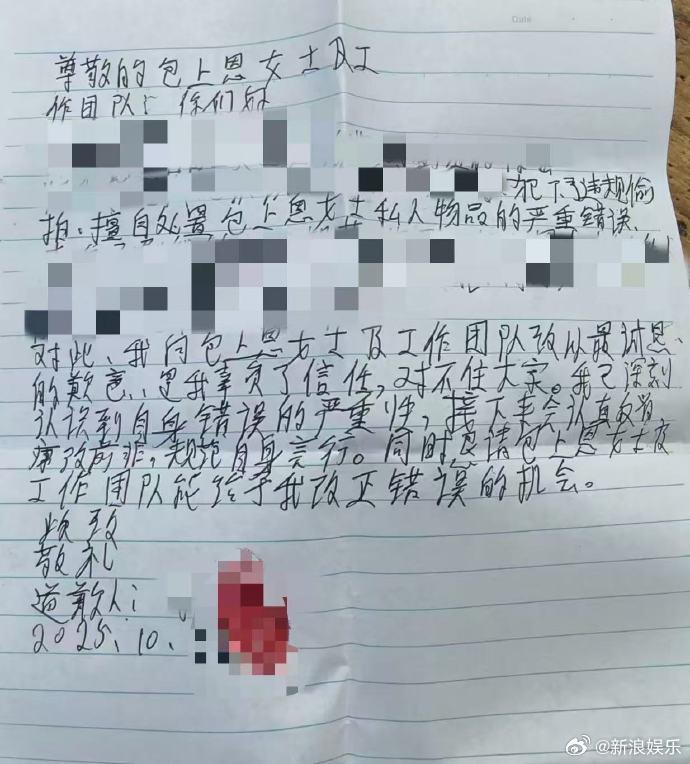 Date
尊敬的包上恩女士及工
作团队: 你们好
犯下了违规偷
拍、擅自处置包上恩女士私人物品的严重错误、
对此、我向包上恩女士及工作团队致以最诚恳、
的歉意、是我辜负了信任,对不住大家。我已深刻
认识到自身错误的严重性,接下来会认真反省
痛改前非,规范自身言行。同时恳请包上恩女士及
工作团队能给予我改正错误的机会。
此致
敬礼
道歉人:
2025、10、
@新浪娱乐